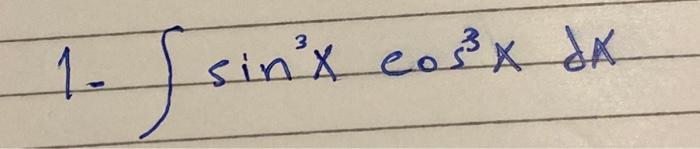 1- ∫ sin³x cos³x dx